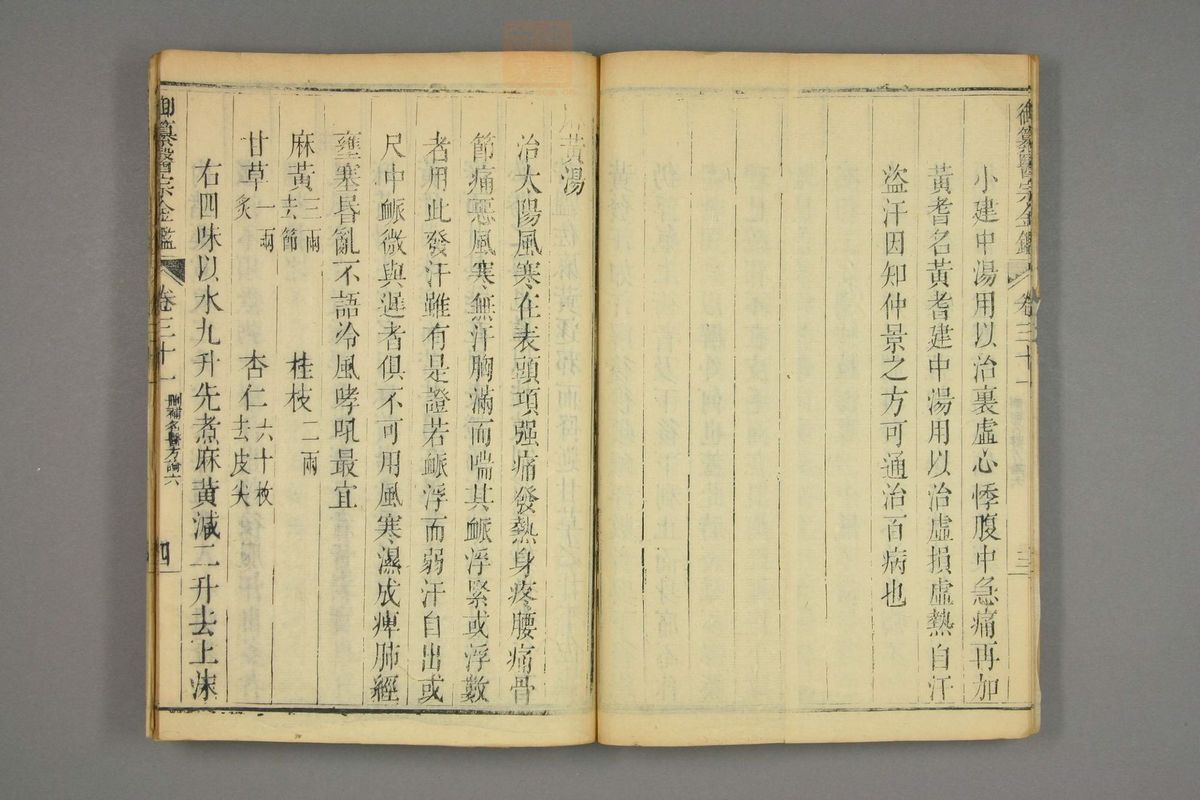 御纂醫宗金鑑 卷三十一 三
小建中湯用以治裏虛心悸腹中急痛再加
黃耆名黃耆建中湯用以治虛損虛熱自汗
盜汗因知仲景之方可通治百病也
黃湯
治太陽風寒在表頭項强痛發熱身疼腰痛骨
節痛惡風寒無汗胸滿而喘其脈浮緊或浮數
者用此發汗雖有是證若脈浮而弱汗自出或
尺中脈微與遲者俱不可用風寒濕成痺肺經
壅塞昏亂不語冷風哮吼最宜
麻黃三兩去節 桂枝二兩
甘草一兩炙 杏仁六十枚去皮尖
右四味以水九升先煮麻黃減二升去上沫
御纂醫宗金鑑 卷三十一 刪補名醫方論六 四